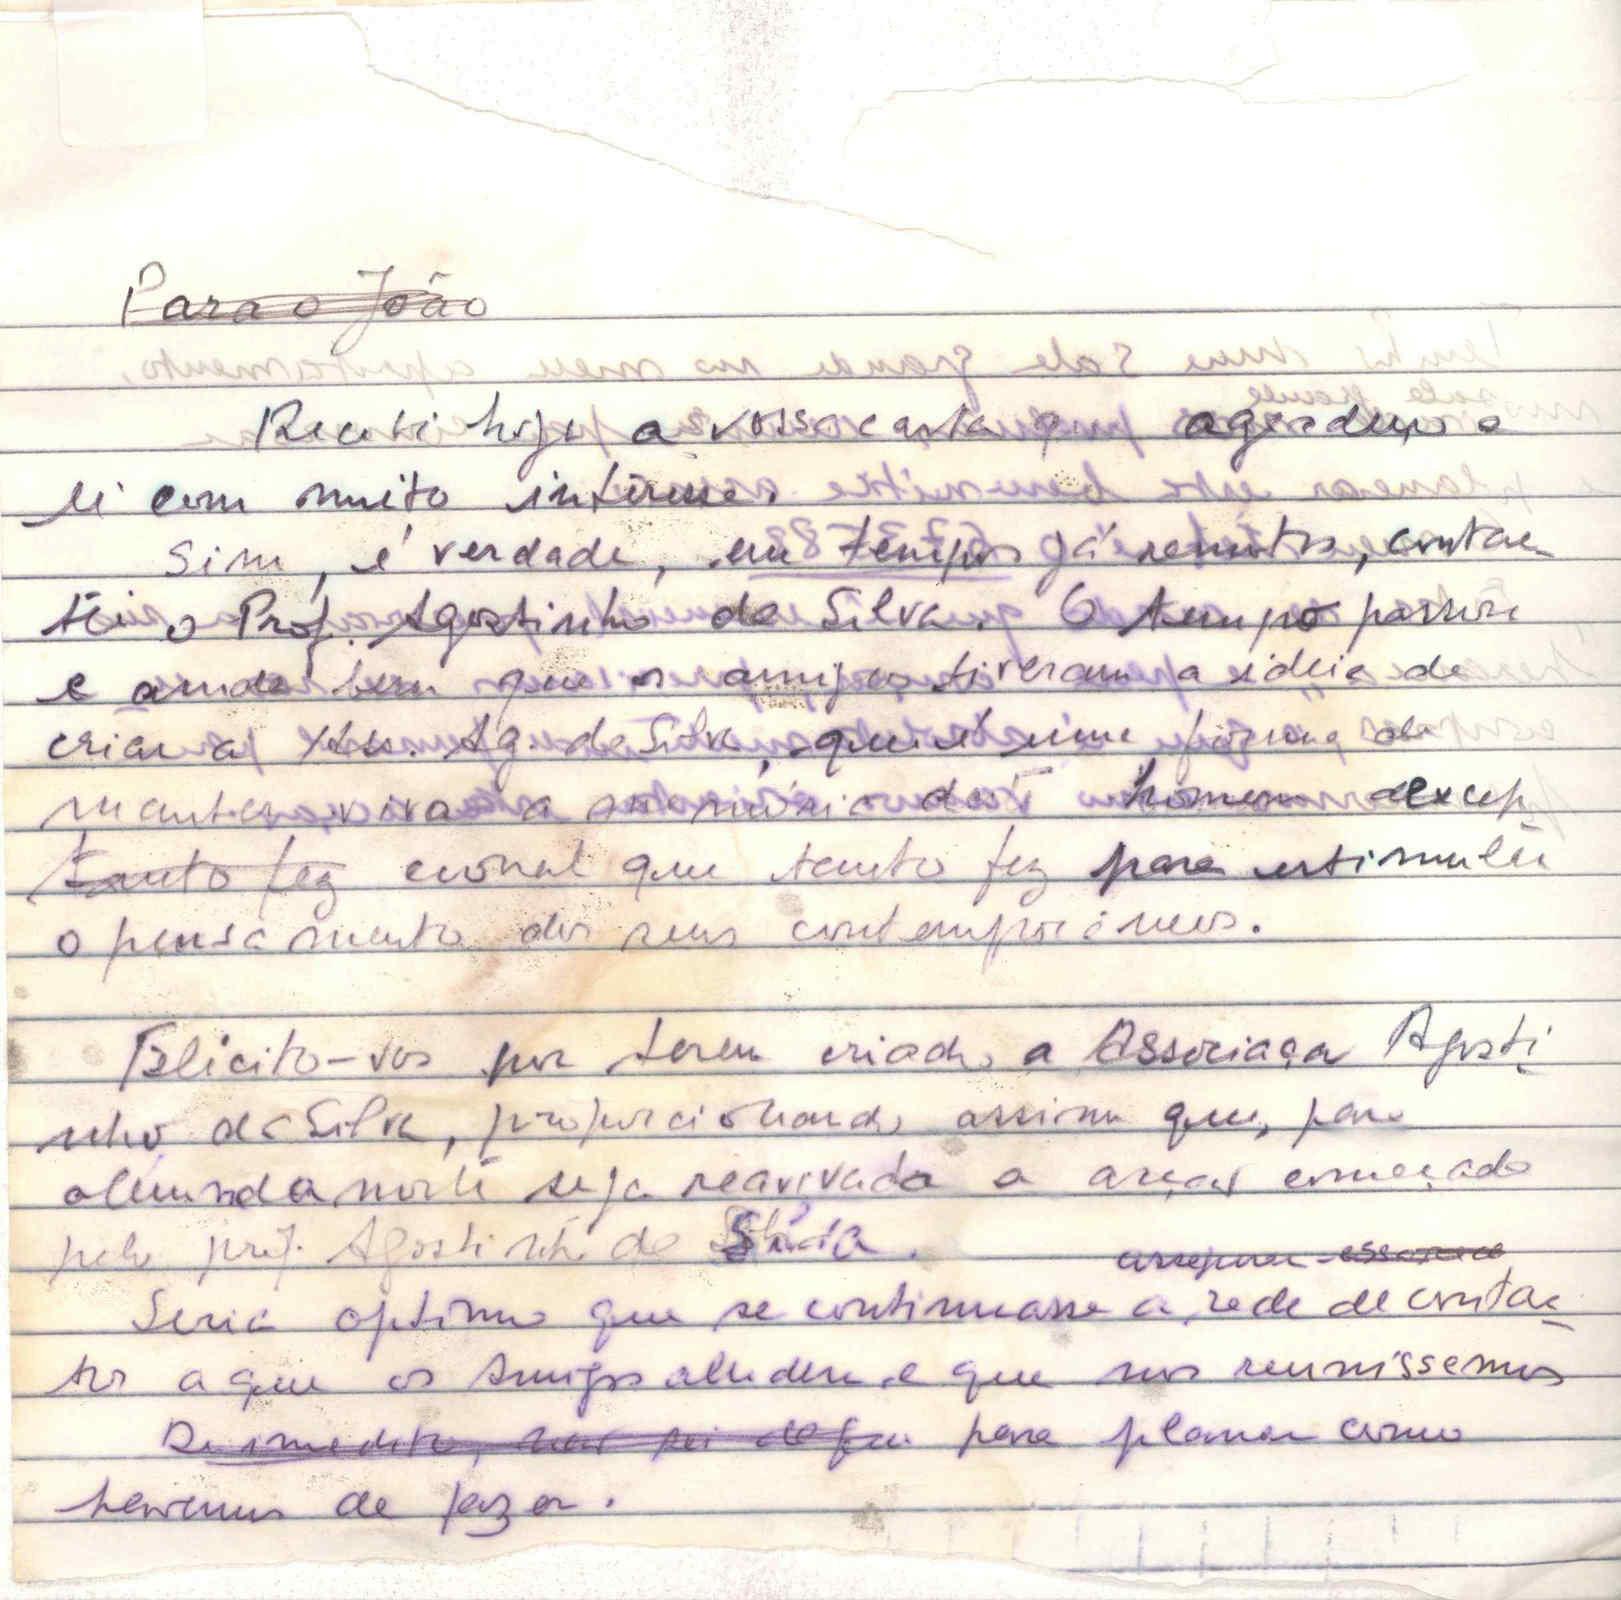 Para o João
Recebi hoje a vossa carta q agradeço e
li com muito interesse.
Sim, é verdade, em tempos já remotos, contac
tei o Prof. Agostinho da Silva. O tempo passou
e ainda bem que os amigos tiveram a ideia de
criar a Ass. Ag. da Silva, que é uma forma de
manter viva a memória de homem excep
tanto fez cional que tanto fez para estimular
o pensamento dos seus contemporâneos.
Felicito-vos por terem criado a Associação Agosti
nho da Silva, proporcionando assim que, para
além da morte seja reavivada a acção começada
pelo prof. Agostinho da Silva.
assegurar
Seria óptimo que se continuasse a rede de contac
tos a que os Amigos aludem e que nos reunissemos
De imediato, para planear como
havemos de fazer.